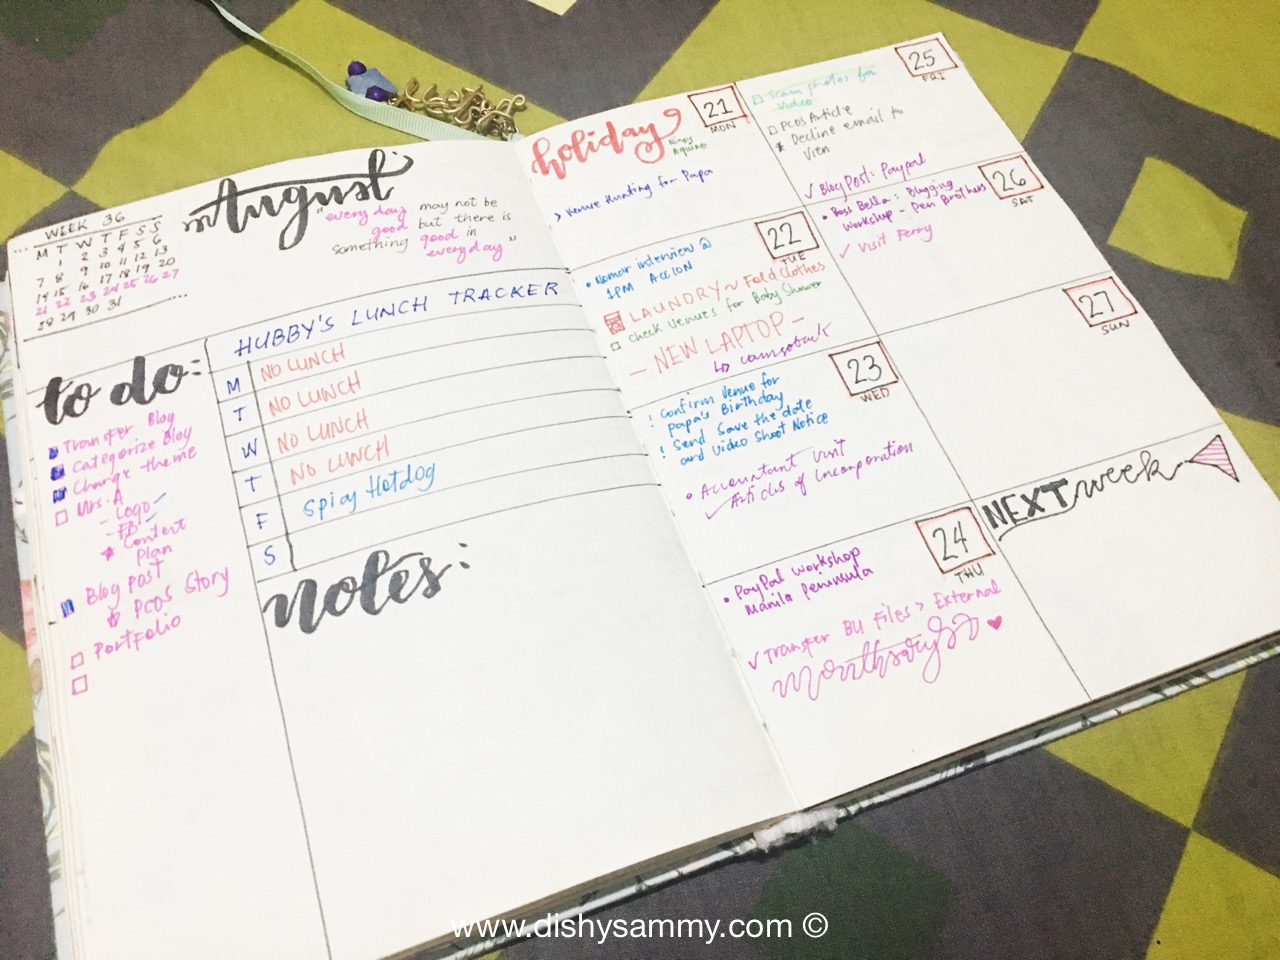 WEEK 36
M T W T F S S
1 2 3 4 5 6
7 8 9 10 11 12 13
14 15 16 17 18 19 20
21 22 23 24 25 26 27
28 29 30 31
August
"everyday may not be
good but there is
something good in
everyday"
to do:
Transfer Blog
Categorize Blog
Change theme
Mrs. A
- Logo
- FB
Content
Plan
Blog post
PCOS Story
Portfolio
HUBBY'S LUNCH TRACKER
M NO LUNCH
T NO LUNCH
W NO LUNCH
T NO LUNCH
F Spicy Hotdog
S
notes:
holiday
Ninoy
Aquino
21
MON
> Venue Hunting for Papa
22
TUE
interview @
1PM ACCION
LAUNDRY ~ Fold clothes
Check venues for Baby Shower
- NEW LAPTOP -
23
WED
! Confirm Venue for
Papa's Birthday
! Send Save the date
and Video Shoot Notice
• Accountant Visit
✓ Articles of Incorporation
24
THU
• PayPal Workshop
Manila Peninsula
✓ Transfer BU Files > External
Monthsary
25
FRI
Scan photos for
video
PCOS Article
Decline email to
Vien
✓ Blog Post: Paypal
26
SAT
• Boss Bella: Blogging
Workshop - Pen Brothers
✓ Visit Ferry
27
SUN
NEXT week
www.dishysammy.com ©